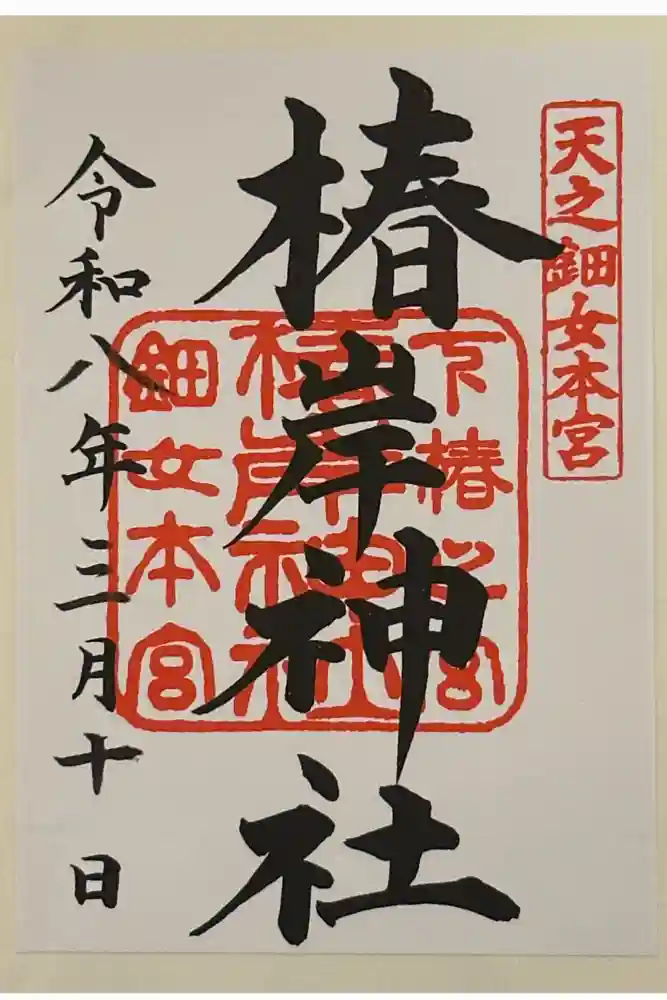 天之鈿女本宮
椿岸神社
下椿之宮
椿岸神社
鈿女本宮
令和八年三月十日